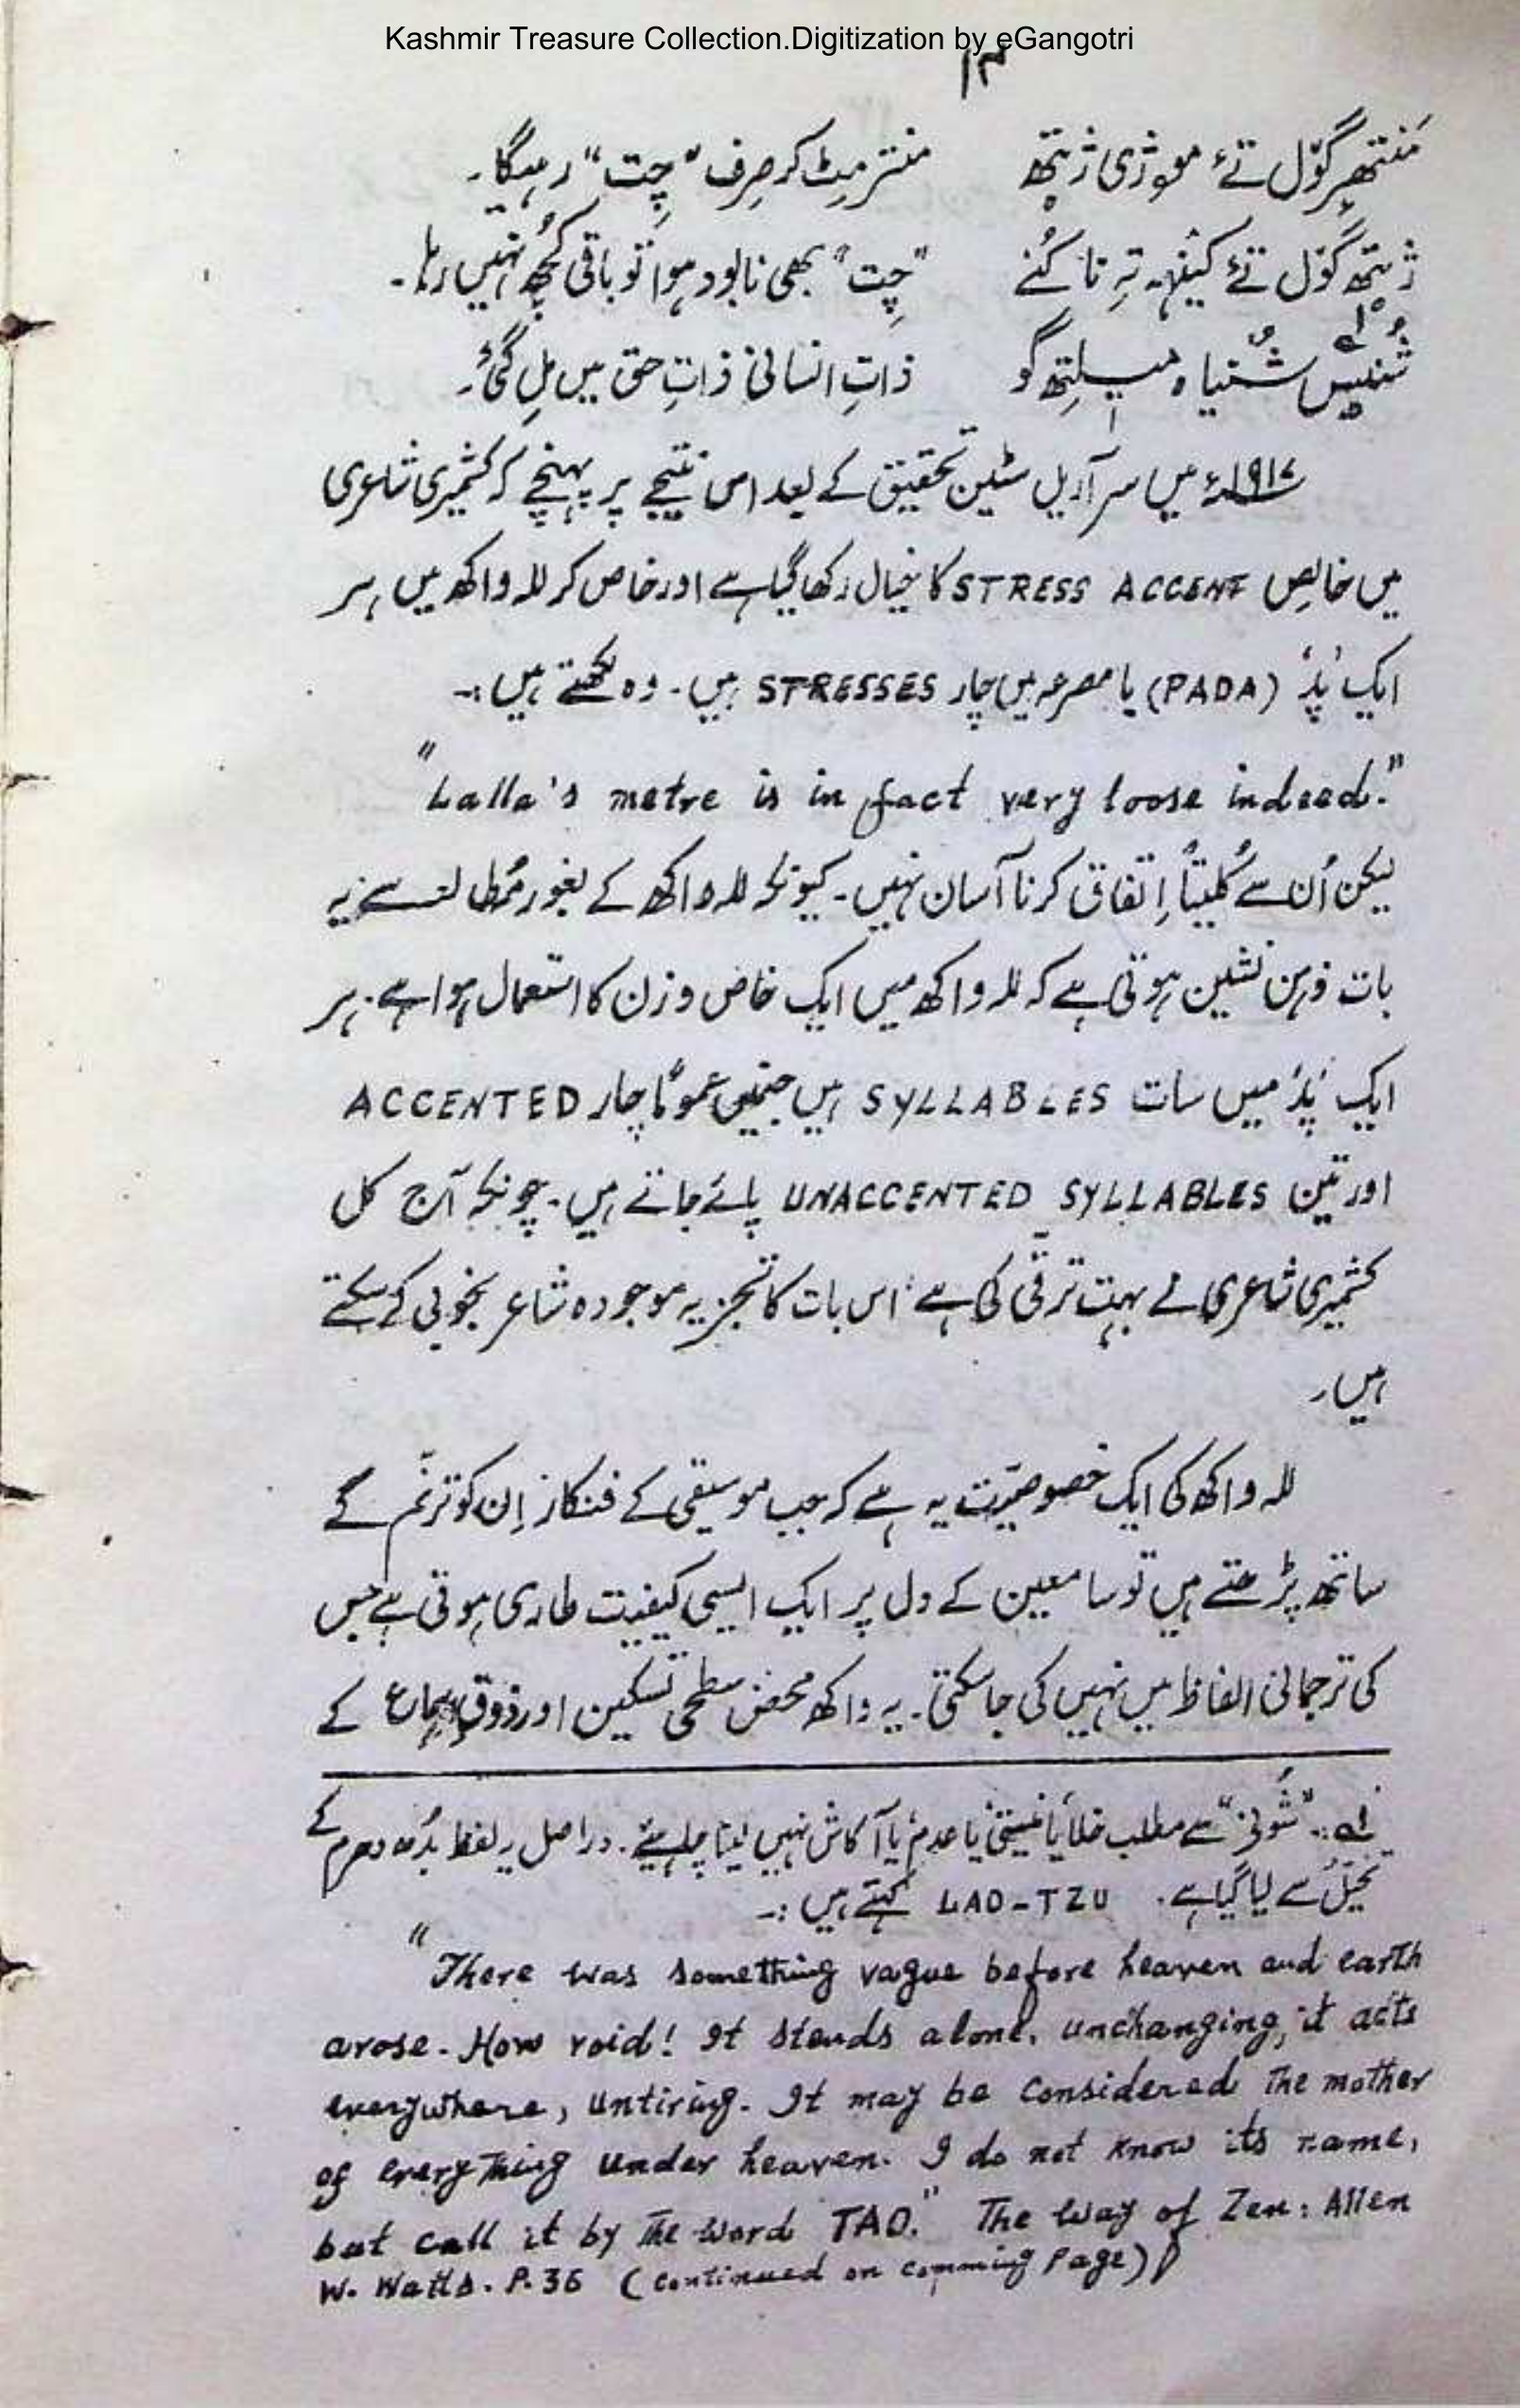 Kashmir Treasure Collection.Digitization by eGangotri
۱۳
مَنتھر گوٚل تے موژی ژیتھ      منتر مِٹ کر صِرف "چِت" رہیگا۔
ژیتھ گوٚل تے کینہہ تہِ نا کُنے      "چِت" بھی نابود ہوا تو باقی کُچھ نہیں رہا۔
شُنیس شُنیاہ میلتھ گو      ذاتِ انسانی ذاتِ حق میں مِل گئی۔
۱۹۱۷ء میں سر آریل سٹین تحقیق کے بعد اس نتیجے پر پہنچے کہ کشمیری شاعری
میں خالِص STRESS ACCENT کا خیال رکھا گیا ہے اور خاص کر للہ واکھ میں ہر
ایک 'پَد' (PADA) یا مصرعہ میں چار STRESSES ہیں۔ وہ لکھتے ہیں :۔
"Lalla's metre is in fact very loose indeed."
لیکن اُن سے کُلیتاً اِتفاق کرنا آسان نہیں۔ کیونکہ للہ واکھ کے بغور مُطالعہ سے یہ
بات ذہن نشین ہوتی ہے کہ للہ واکھ میں ایک خاص وزن کا استعمال ہوا ہے۔ ہر
ایک 'پَد' میں سات SYLLABLES ہیں جنمیں عموماً چار ACCENTED
اور تین UNACCENTED SYLLABLES پائے جاتے ہیں۔ چونکہ آج کل
کشمیری شاعری نے بہت ترقی کی ہے اس بات کا تجزیہ موجودہ شاعر بخوبی کر سکتے
ہیں۔
للہ واکھ کی ایک خصوصیّت یہ ہے کہ جب موسیقی کے فنکار اِن کو ترنّم کے
ساتھ پڑھتے ہیں تو سامعین کے دل پر ایک ایسی کیفیت طاری ہوتی ہے جس
کی ترجمانی الفاظ میں نہیں کی جا سکتی۔ یہ واکھ محض سطحی تسکین اور ذوقِ سماع کے
لہ :۔ "شُونی" سے مطلب خلا یا نیستی یا عدم یا آکاش نہیں لینا چاہیئے۔ دراصل یہ لفظ بُدھ دھرم کے
تخیّل سے لیا گیا ہے۔ LAO-TZU کہتے ہیں :۔
"There was something vague before heaven and earth
arose. How void! It stands alone, unchanging, it acts
everywhere, untiring. It may be considered the mother
of everything under heaven. I do not know its name,
but call it by the word TAO." The Way of Zen: Allen
W. Watts. P. 36 (continued on comming page)